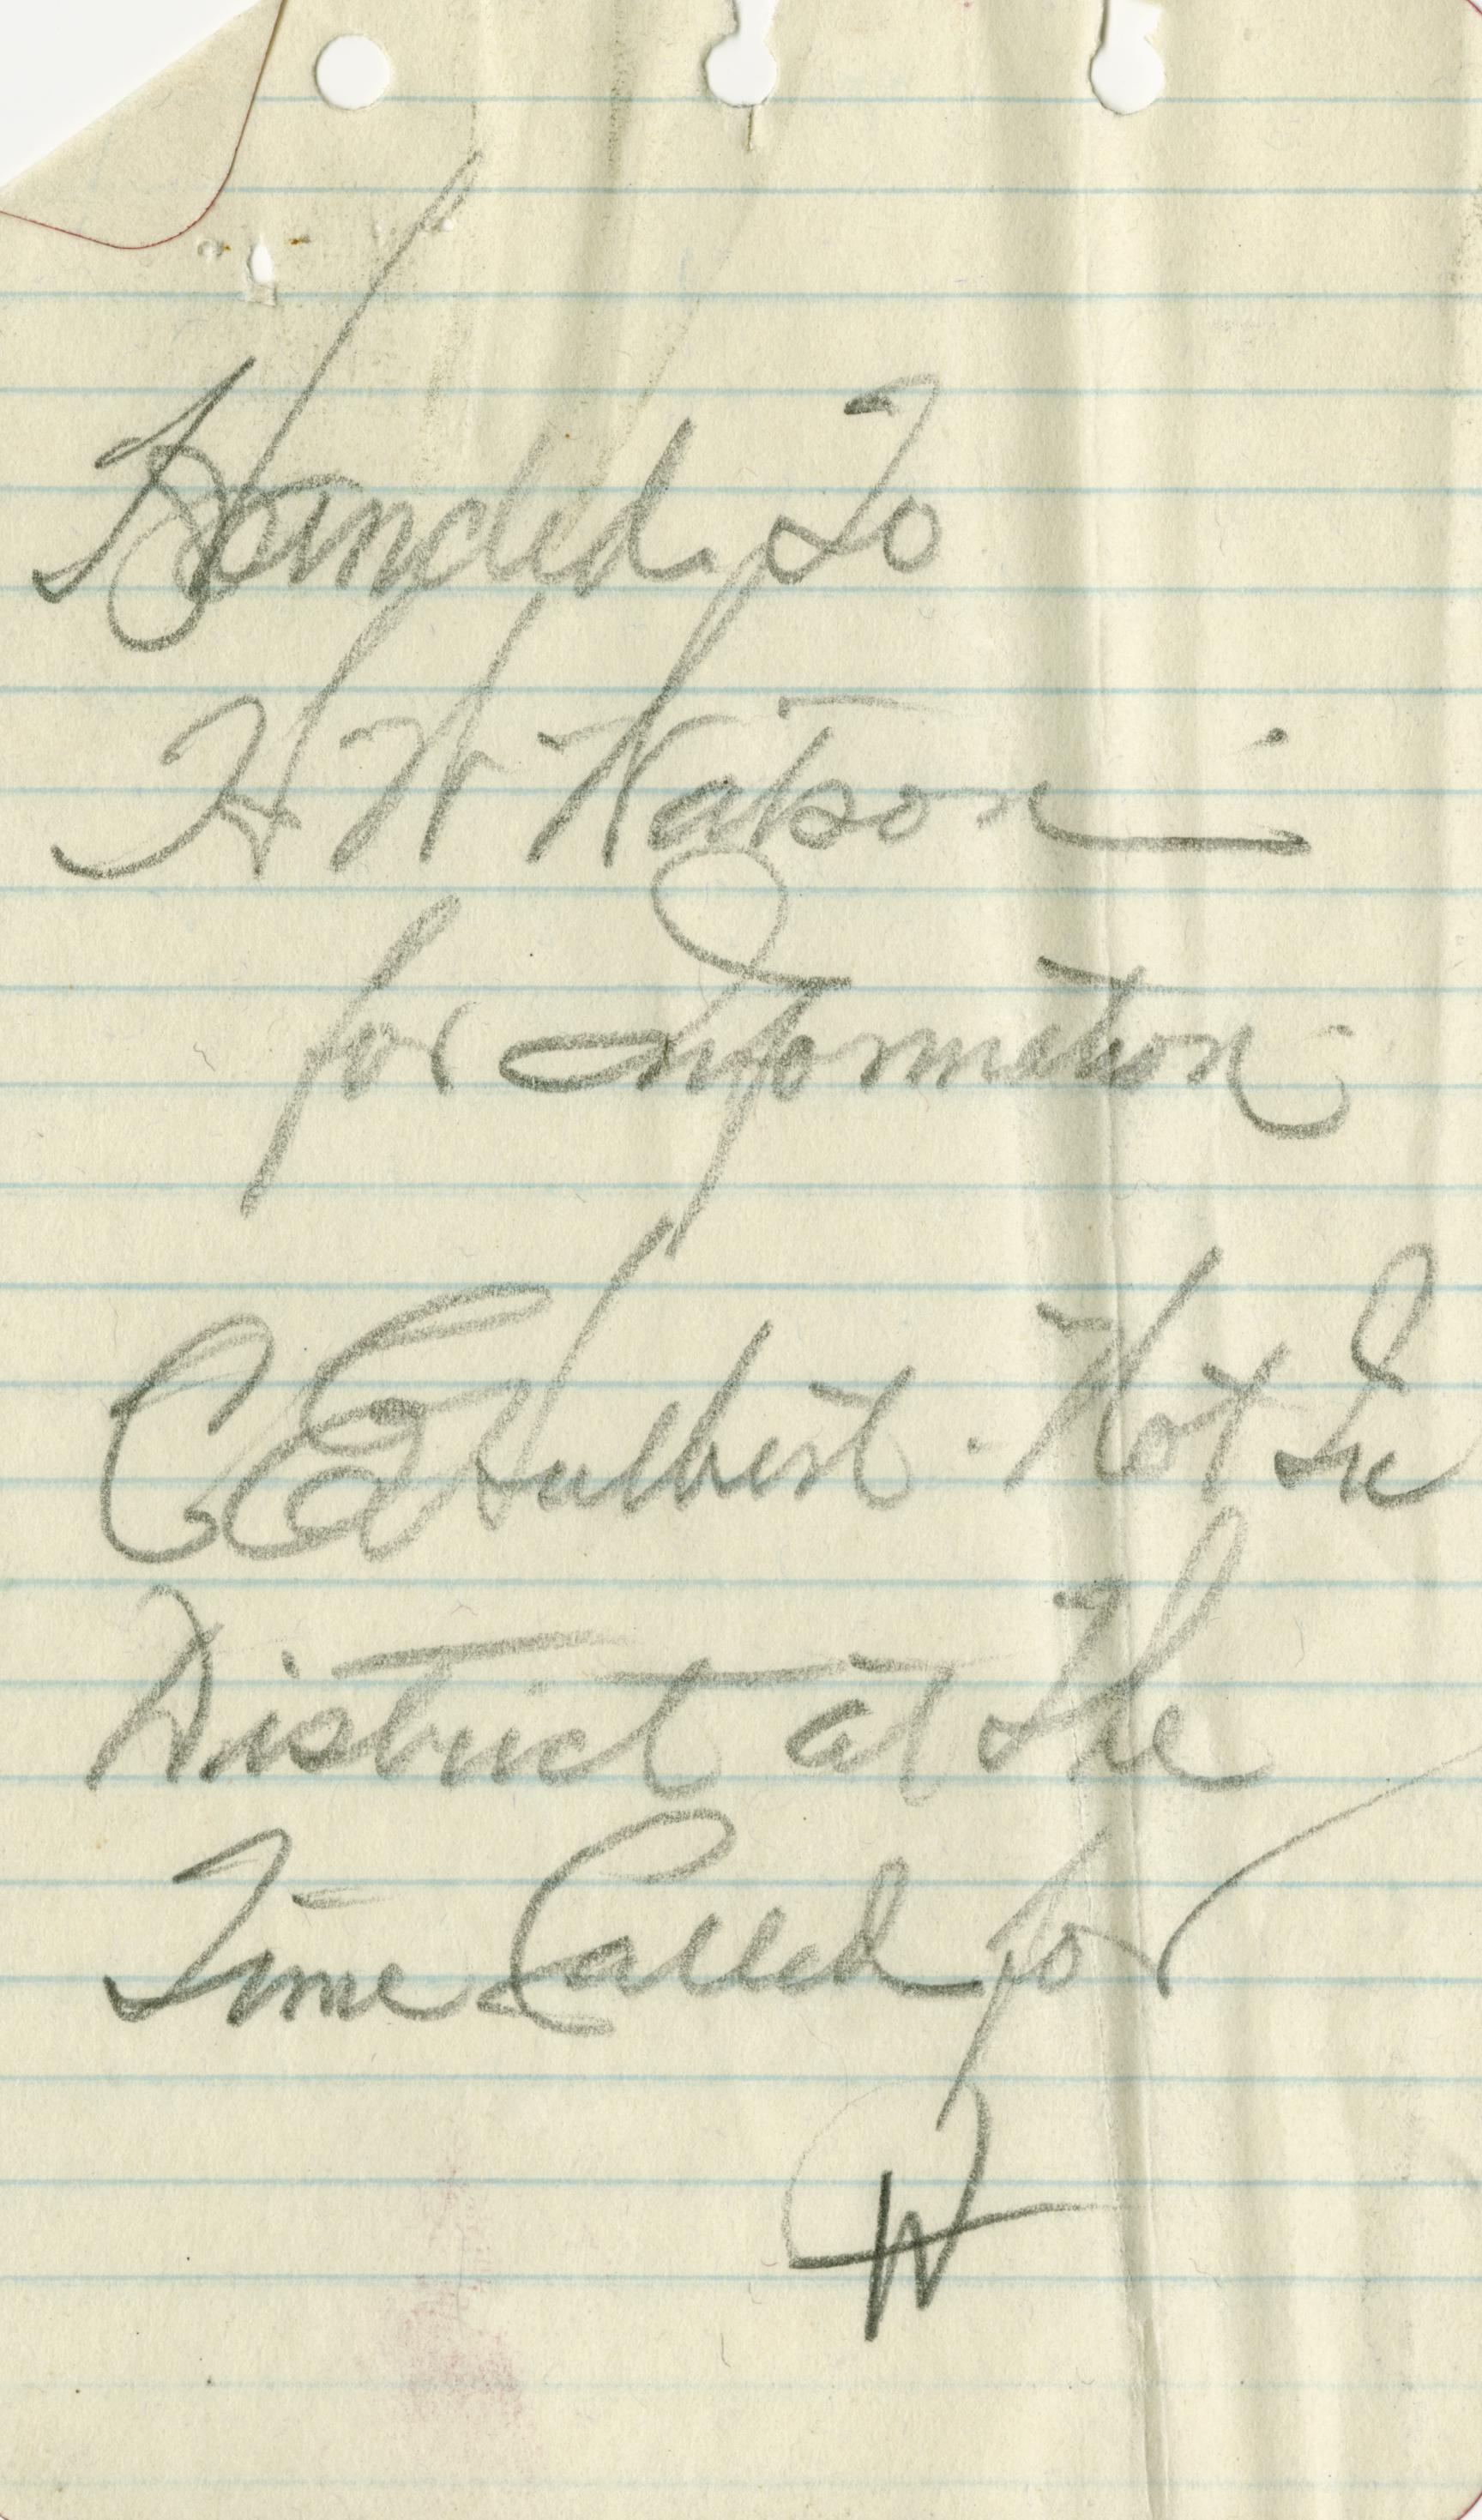 Handed To
H W Watson
for Information
C E Hulbert. Not In
District at The
Time Called for
W